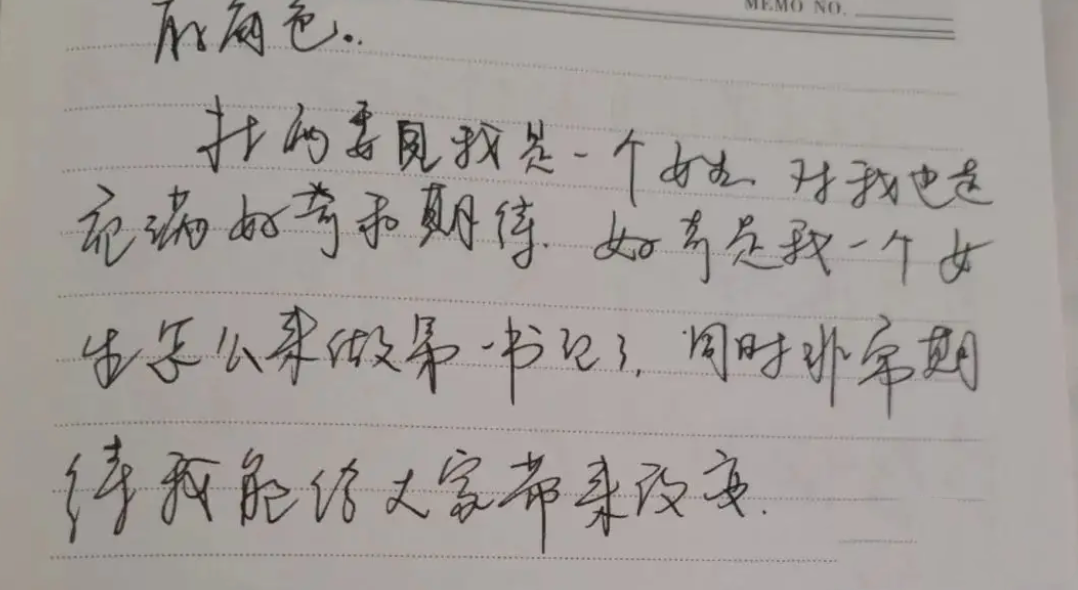 MEMO NO.
角色.
村两委见我是一个女生、对我也是
充满好奇和期待. 好奇是我一个女
生怎么来做第一书记了, 同时非常期
待我能给大家带来改变.